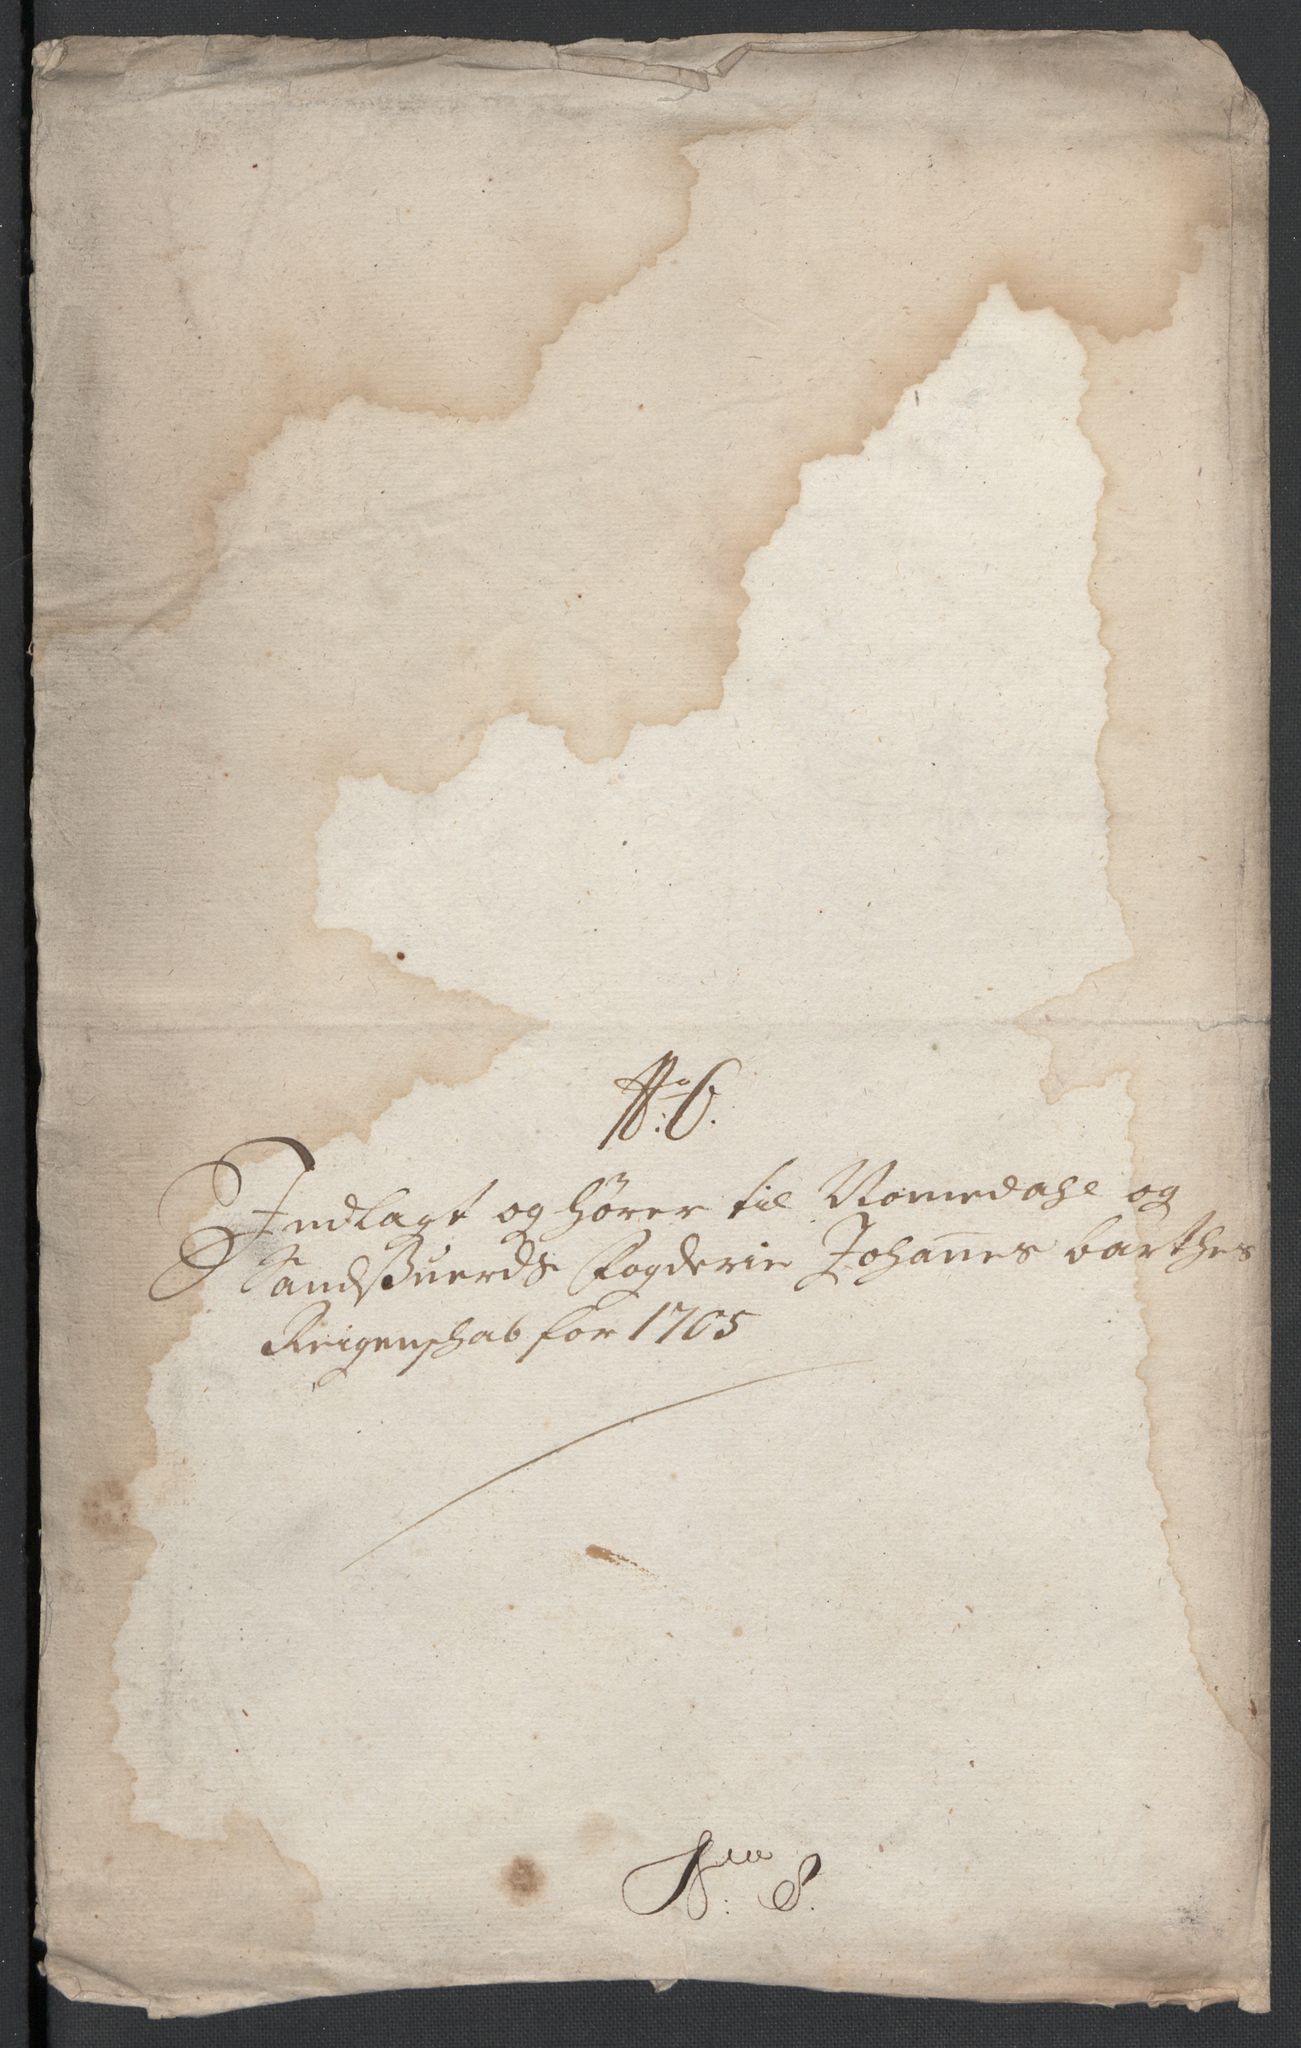 No. 6.
Indlagt og hører til Romsdahl og
Sundßuerds fogderie Johannes barthes
Reigenschab for 1705
No. 8.